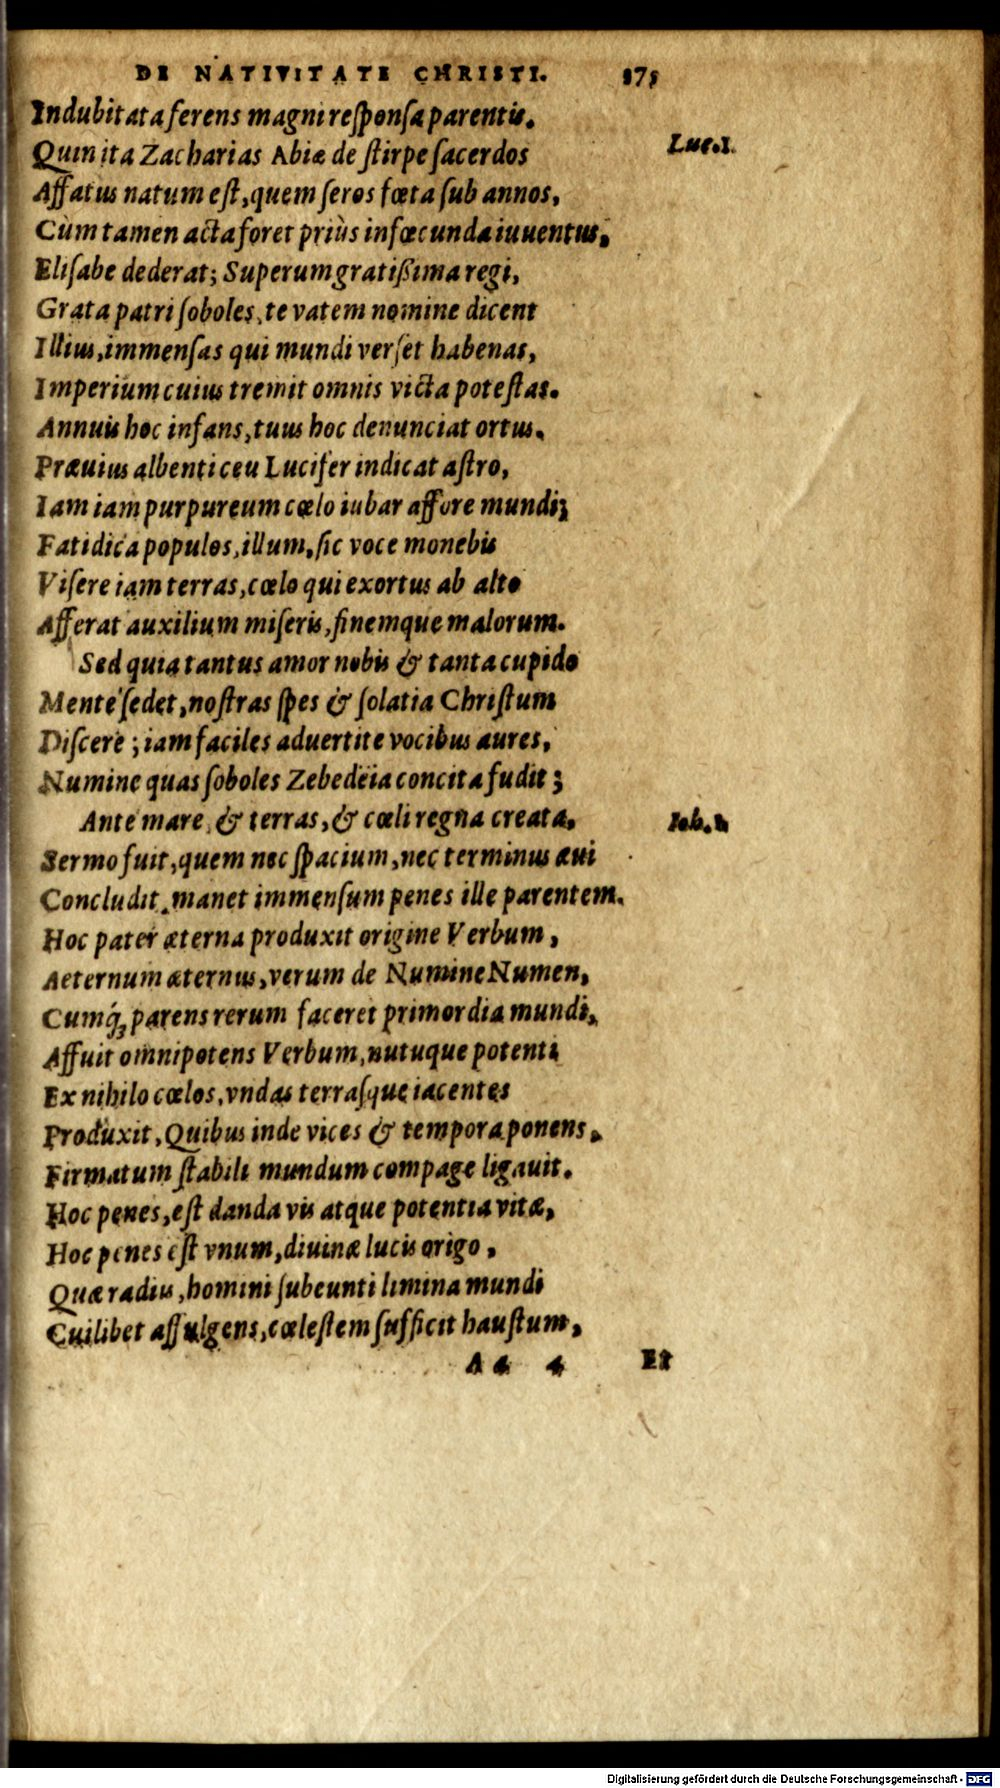 DE NATIVITATE CHRISTI. 375
Indubitata ferens magni responſa parentis.
Quin ita Zacharias Abiæ de ſtirpe ſacerdos
Luc.1.
Affatus natum eſt, quem ſeros fœta ſub annos,
Cùm tamen acta foret priùs infœcunda iuuentus,
Eliſabe dederat; Superum gratißima regi,
Grata patri ſoboles, te vatem nomine dicent
Illius, immenſas qui mundi verſet habenas,
Imperium cuius tremit omnis victa poteſtas.
Annuis hoc infans, tuus hoc denunciat ortus.
Præuius albenti ceu Lucifer indicat aſtro,
Iam iam purpureum cœlo iubar affore mundi;
Fatidica populos, illum, ſic voce monebis
Viſere iam terras, cœlo qui exortus ab alto
Afferat auxilium miſeris, finemque malorum.
Sed quia tantus amor nobis & tanta cupido
Mente ſedet, noſtras ſpes & ſolatia Chriſtum
Diſcere; iam faciles aduertite vocibus aures,
Numine quas ſoboles Zebedëia concita fudit;
Ante mare, & terras, & cœli regna creata,
Ioh.1.
Sermo fuit, quem nec ſpacium, nec terminus æui
Concludit, manet immenſum penes ille parentem.
Hoc pater æterna produxit origine Verbum,
Aeternum æternus, verum de Numine Numen,
Cumq́; parens rerum faceret primordia mundi,
Affuit omnipotens Verbum, nutuque potenti
Ex nihilo cœlos, vndas terraſque iacentes
Produxit, Quibus inde vices & tempora ponens,
Firmatum ſtabili mundum compage ligauit.
Hoc penes, eſt danda vis atque potentia vitæ,
Hoc penes eſt vnum, diuinæ lucis origo,
Quæ radius, homini ſubeunti limina mundi
Cuilibet affulgens, cœleſtem ſufficit hauſtum,
Aa 4 Et
Digitalisierung gefördert durch die Deutsche Forschungsgemeinschaft - DFG